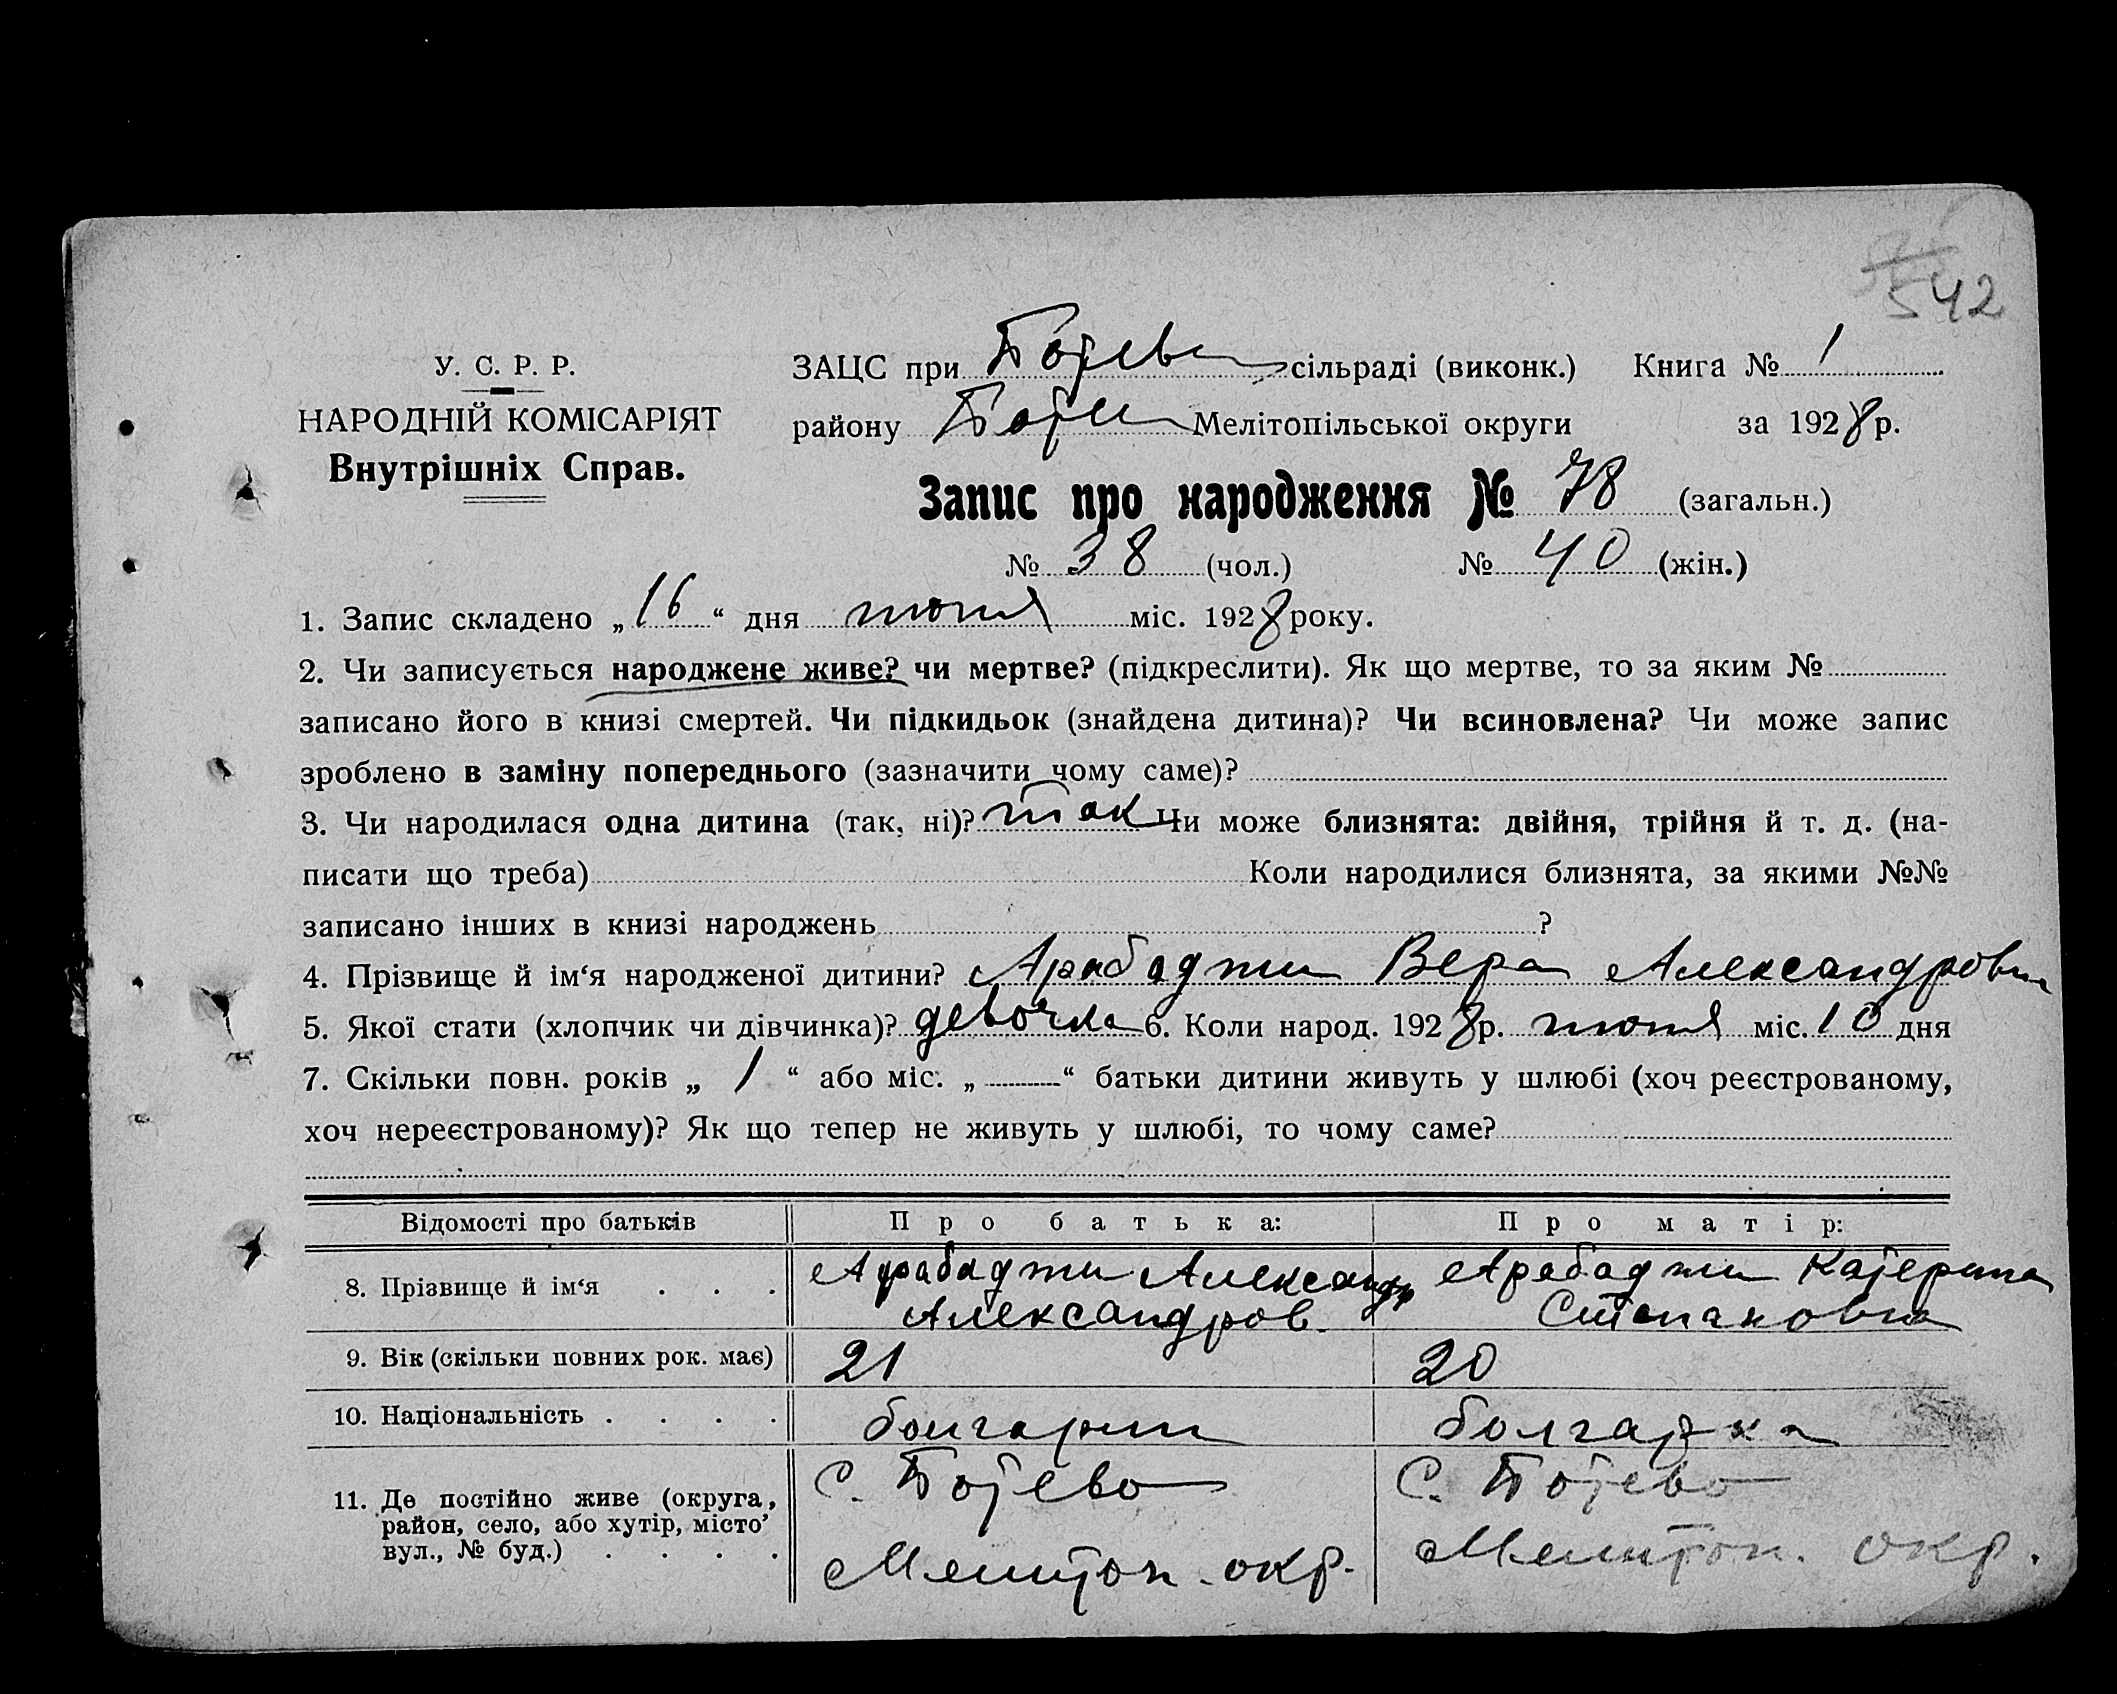 542
У. С. Р. Р.
НАРОДНІЙ КОМІСАРІЯТ
Внутрішніх Справ.
ЗАЦС при Ботев сільраді (виконк.) Книга № 1
району Боти Мелітопільської округи за 1928 р.
Запис про народження № 78 (загальн.)
№ 38 (чол.) № 40 (жін.)
1. Запис складено „16“ дня июня міс. 1928 року.
2. Чи записується народжене живе? чи мертве? (підкреслити). Як що мертве, то за яким №
записано його в книзі смертей. Чи підкидьок (знайдена дитина)? Чи всиновлена? Чи може запис
зроблено в заміну попереднього (зазначити чому саме)?
3. Чи народилася одна дитина (так, ні)? так Чи може близнята: двійня, трійня й т. д. (на-
писати що треба) Коли народилися близнята, за якими №№
записано інших в книзі народжень ?
4. Прізвище й ім‘я народженої дитини? Арабаджи Вера Александровна
5. Якої стати (хлопчик чи дівчинка)? девочка 6. Коли народ. 1928 р. июня міс. 10 дня
7. Скільки повн. років „ 1 “ або міс. „ “ батьки дитини живуть у шлюбі (хоч реєстрованому,
хоч нереєстрованому)? Як що тепер не живуть у шлюбі, то чому саме?
Відомості про батьків Про батька: Про матір:
8. Прізвище й ім‘я . . . Арабаджи Александр Арабаджи Катерина
Александров. Степановна
9. Вік (скільки повних рок. має) 21 20
10. Національність . . . . болгарин болгарка
11. Де постійно живе (округа, район, село, або хутір, місто’ вул., № буд.) . . . . с. Ботево с. Ботево
Мелитоп. окр. Мелитоп. окр.